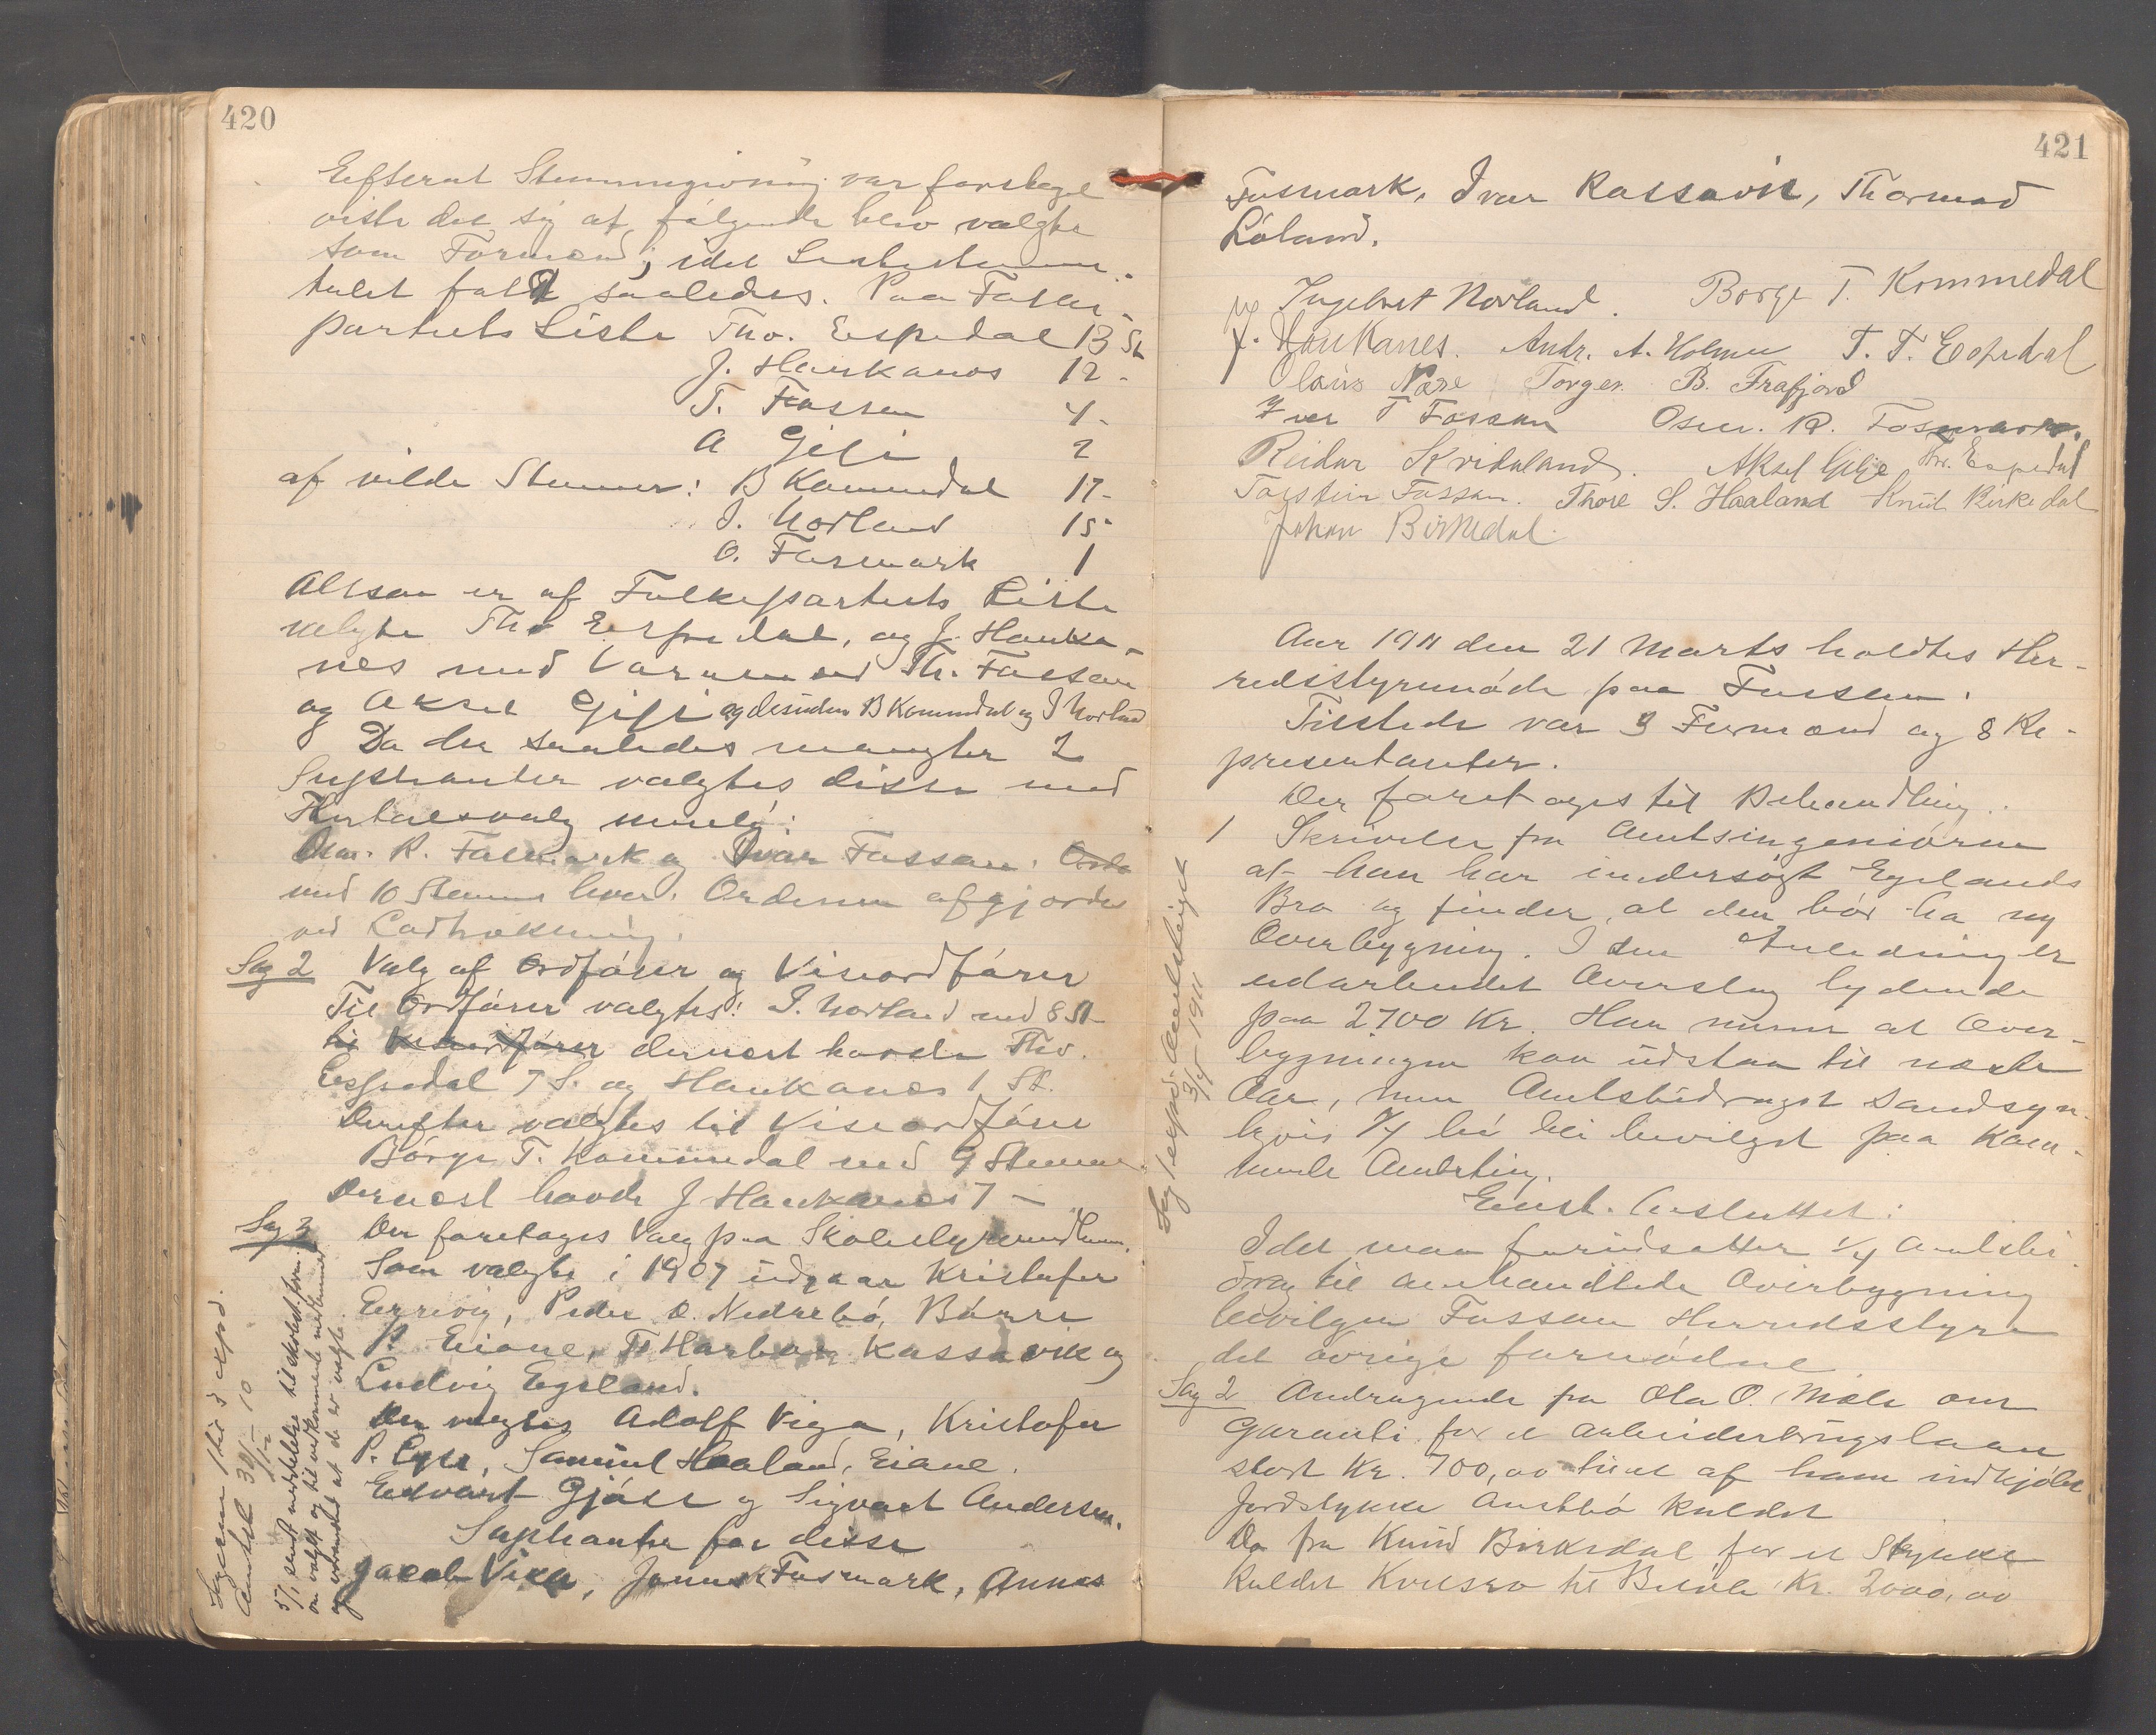 420
Efterat Stemmegivning var foretaget
viste det sig at følgende blev valgte
som Formænd; idet Listestemme-
talet faldt saaledes. Paa Folke-
partiets Liste Tho. Espedal 13 St.
J. Haukanes 12 -
T. Fossan 4 -
A Gilje 2
af vilde Stemmer: B Kommedal 17 -
I. Norland 15 -
O. Fosmark 1
Altsaa er af Folkepartiets Liste
valgte Tho Espedal, og J. Hauka-
nes med Varamænd Th. Fossan
og Aksel Gilje og desuden B Kommedal og I Norland
Da der saaledes mangler 2
Supleanter valgtes disse med
Flertalsvalg nemlig:
Osm. R. Fosmark og Ivar Fossan.
med 10 Stemmer hver. Ordenen afgjordes
ved Lodtrækning.
Sag 2 Valg af Ordfører og Viseordfører
Til Ordfører valgtes: I. Norland med 8 St
til Viseordfører dernæst havde Tho.
Espedal 7 S. og Haukanes 1 St.
Derefter valgtes til Viseordfører
Børge T. Kommedal med 9 Stemmer
Dernæst havde J Haukanes 7 -
Sag 3 Der foretages Valg paa Skolestyremedlem.
Som valgte i 1907 udgaar Kristofer
Eggevig, Peder O. Nedrebø, Børre
P. Eiane, Th Harbar Kassavik og
Ludvig Egeland.
Der valgtes Adolf Viga, Kristofer
P. Eyse, Samuel Haaland, Eiane.
Edvart Gjøse og Sigvart Andersen.
Supleanter for disse
Jacob Viga, Jonas Fosmark, Annas
Sagerne 1 til 3 exped.
Amtet 31/12 - 10
5/1 sendt meddelelse til skolest. form.
om valget og til vedkommende medlemmer
og varamænd at de er valgte.
421
Fosmark, Ivar Kassavik, Thormod
Løland.
Ingebret Norland. Børge T. Kommedal
J. Haukanes. Andr. A. Holmen T. T. Espedal
Olaus Nøre Torger B. Frafjord
Iver T Fossan Osm. R. Fosmark.
Reidar Kridaland. Aksel Gilje Tho. Espedal
Torstein Fossan. Thore S. Haaland Knud Birkedal
Johan Birkedal.
Aar 1911 den 21 Marts holdtes Her-
redsstyremøde paa Fossan.
Tilstede var 3 Formænd og 8 Re-
presentanter.
Der foretages til Behandling.
1 Skrivelse fra Amtsingeniøren
at han har undersøgt Egelands
Bro og finder, at den bør ha ny
Overbygning. I den Anledning er
udarbeidet Overslag lydende
paa 2700 Kr. Han mener at Over-
bygningen kan udstaa til næste
Aar, men Amtsbidraget sandsyn-
ligvis 1/4 bør bli bevilget paa Kom-
mende Amtsting.
Enst. Besluttet:
Idet man forudsætter 1/4 Amtsbi
drag til omhandlede Overbygning
bevilgen Fossan Herredsstyre
det øvrige fornødne
Sag 2 Andragende fra Ola O. Mæle om
Garanti for et Arbeiderbrugslaan
stort Kr. 700,00 til et af ham indkjøbt
Jordstykke Austbø kaldet
Do fra Knud Birkedal for et Stykke
kaldet Kvæsro til Beløb Kr. 2000,00
Sag 1 exped. Amtsting
3/4 1911